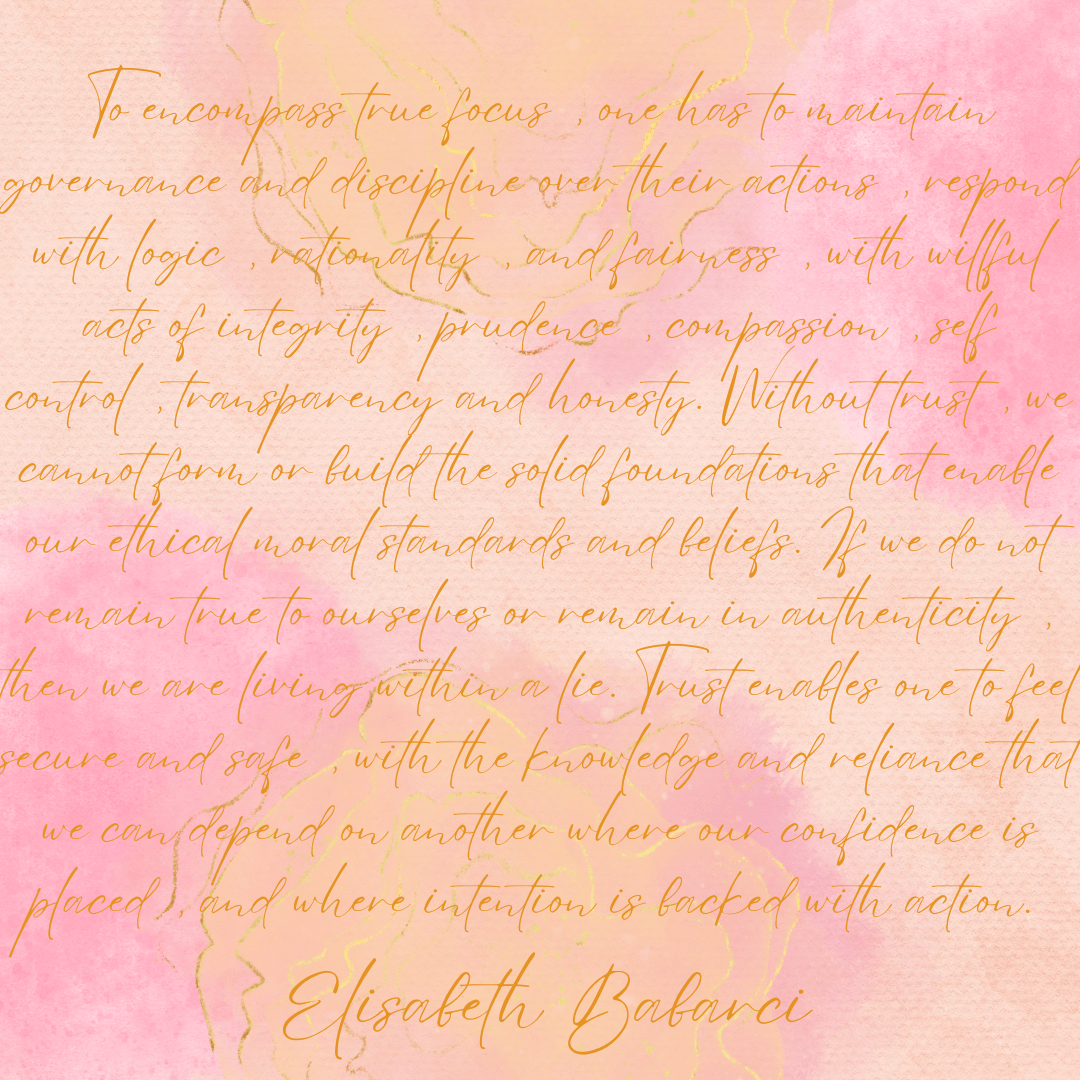 To encompass true focus , one has to maintain
governance and discipline over their actions , respond
with logic , rationality , and fairness , with willful
acts of integrity , prudence , compassion , self
control , transparency and honesty. Without trust , we
cannot form or build the solid foundations that enable
our ethical moral standards and beliefs. If we do not
remain true to ourselves or remain in authenticity ,
then we are living within a lie. Trust enables one to feel
secure and safe , with the knowledge and reliance that
we can depend on another where our confidence is
placed , and where intention is backed with action.
Elisabeth Babarci